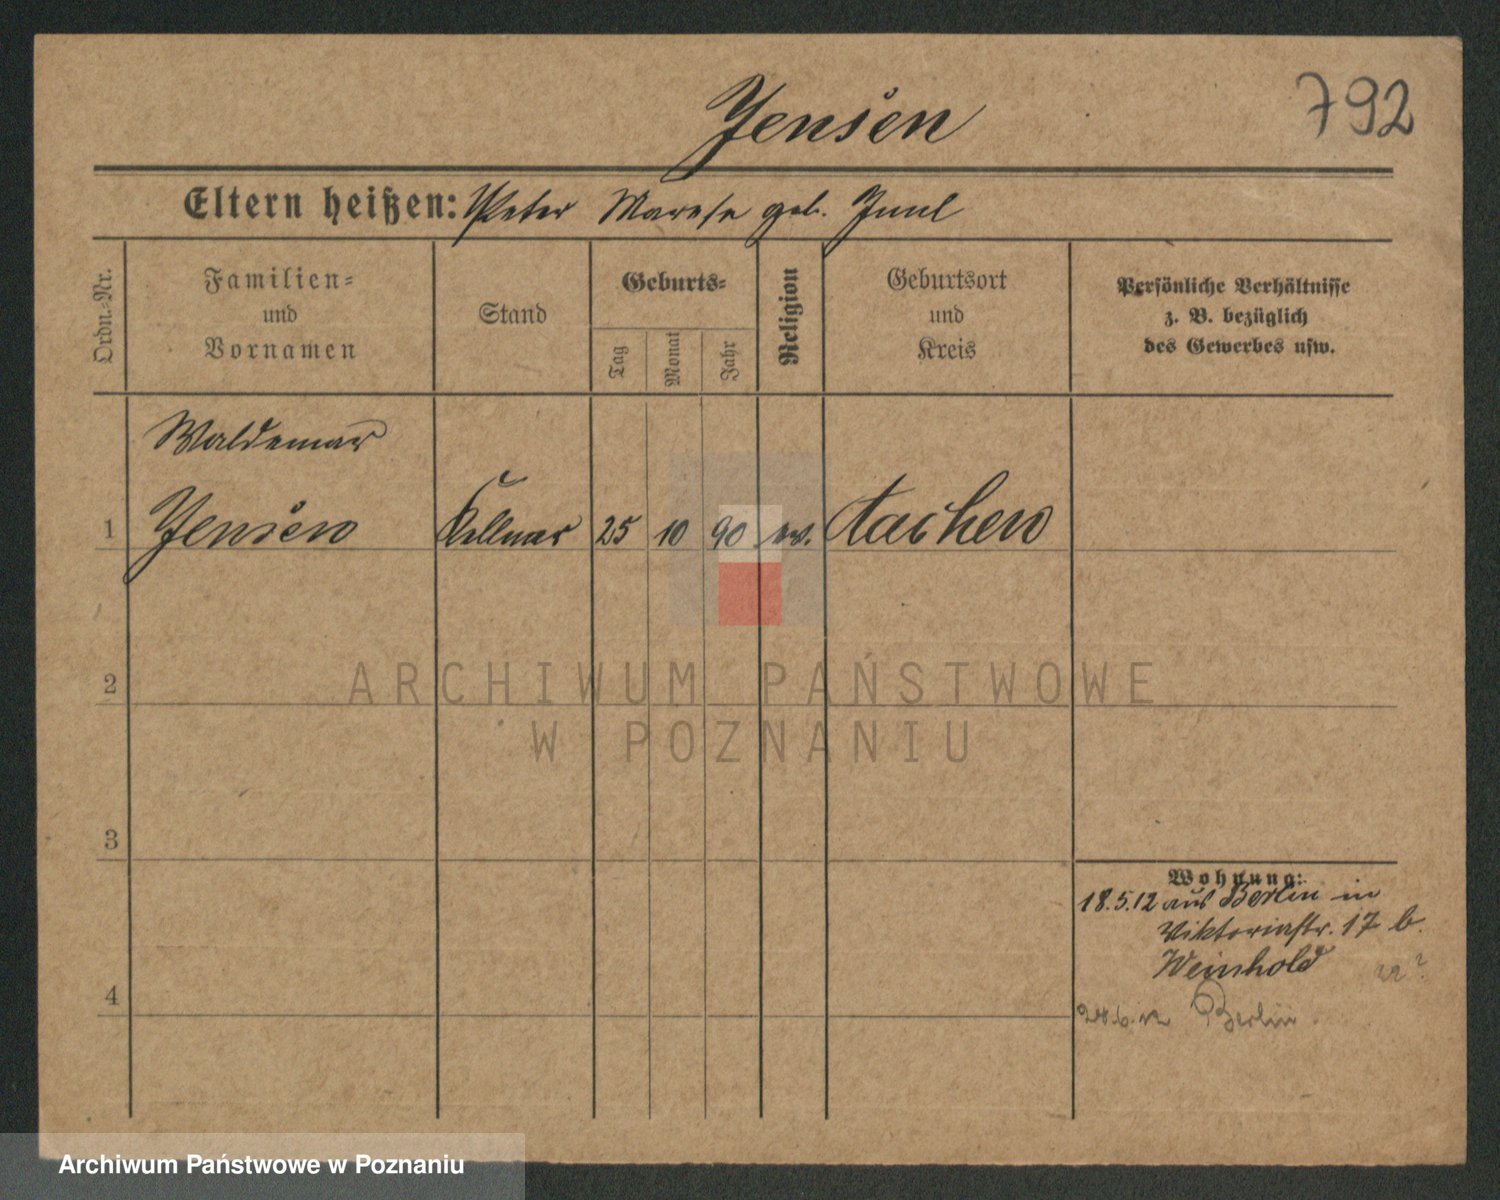 Jensen
792
Eltern heißen: Peter Marese geb. Juul
Ordn.-Nr.
Familien-
und
Vornamen
Stand
Geburts-
Tag
Monat
Jahr
Religion
Geburtsort
und
Kreis
Persönliche Verhältnisse
z. B. bezüglich
des Gewerbes usw.
Waldemar
1 Jensen Kellner 25 10 90 ev. Aachen
ARCHIWUM PAŃSTWOWE
W POZNANIU
2
3
Wohnung:
18.5.12 aus Berlin in
Viktoriastr. 17 b.
Weinhold
4
Berlin
Archiwum Państwowe w Poznaniu